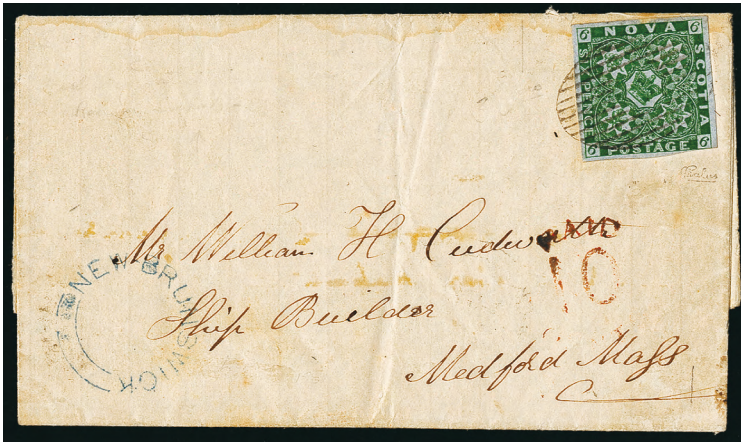 NOVA
SCOTIA
SIX PENCE
POSTAGE
6
6
6
6
Mr William H Cudworth
PAID
10
NEW BRUNSWICK
Ship Builder
Medford Mass